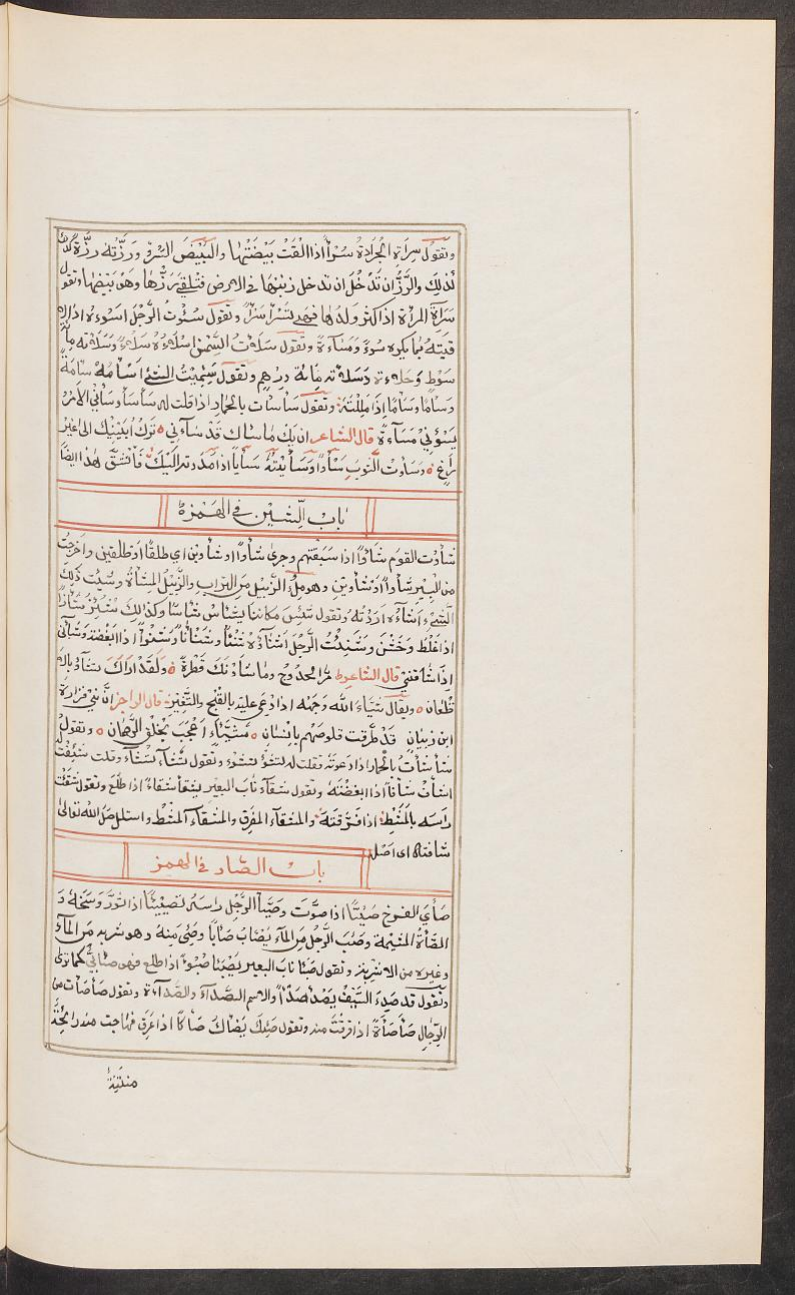 وتقول سرأة الجرادة سروأً اذا القت بيضتها والبيض السرؤ ورزّته رزّة كذلك
لذلك والرزّ ان تدخل ان تدخل ذنبها في الارض فتلقي رزّها وهو بيضها وتقول
سرأة المرأة اذا كثر ولدها فهي تسرأ سرأً وتقول سُئوت الرّجل اسوءه اذا
قيته بما يكره سوءً ومساءة وتقول سلات السّمن اسلاءه سلاءً وسلاته مائة
سوط وحلاءته وسلاته مائة درهم وتقول سئمت الشئ اسأمه سآمة
وسأمًا وسأمًا اذا مللته وتقول سأسات بالحمار اذا قلت له سأسأ وسأني الامر
يسؤني مساءةً قال الشاعر ان يك ما ساك قد سآءني ترك ابينيك الى غير
راغ وسأوت الثوب سأوًا وسأيته سأياً اذا مددته اليك فانشقّ لهذا ايضًا
باب الشين في الهمزة
شأوت القوم شأوًا اذا سبقتهم وجرى شأوًا او شأوين اي طلقًا او طلقين واخرجت
من البير شأوًا او شأوين وهو ملؤ الزّبيل من التراب والزّبيل المشآة وشئت ذلك
الشئ اشآءه اردته وتقول شئس مكاننا يشأس شأسًا وكذلك شئز شأزًا
اذا غلظ وخشن وشنئت الرّجل اشنأه شنئًا وشنأنًا وشنوأً اذا ابغضته وشأني
اذا شاقني قال الشاعر مرّ الحدوج وما شأونك قطرةً ولقد اراك تشآء بالا
ظعان ويقال شيّاء الله وجهه اذا دعى عليه بالقبح والتغير قال الراجز انّ بني فزارة
ابن ذبيان قد طرقت قلوصهم بانسان مشيّاء اعجب بخلق الرحمان وتقول
شأشأت بالحمار اذا دعوته فقلت له تشؤ تشوء وتقول تشأ تشأ وقلت شئفت
اشأف شأفًا اذا ابغضته وتقول شقآء ناب البعير يشقأ شقاءً اذا طلع وتقول شقئت
راسه بالمشط اذا فرّقته والمشقآء المفرق والمشقاء المشط واستاصل الله تعالى
شافته اى اصل
باب الصّاد في الهمز
صأي الفروخ صئيًّا اذا صوّت وصيّأ الرّجل راسه تصييئًا اذا ثوّر وسخه و
وصئب الرّجل من المآء يصأب صأبًا وصئى منه وهو شربه من المآء
وغيره من الاشربه وتقول صبأ ناب البعير يصبأ صبوءً اذا طلع فهو صابئٌ كما ترى
وتقول قد صدء السّيف يصدأ صدأً والاسم الصّدآء والصّداءة وتقول صأصأت من
الرّجال صأصأةً اذا فرقت منه وتقول صئك يصأك صأكًا اذا عرق فهاجت منه رائحةٌ
منتنة